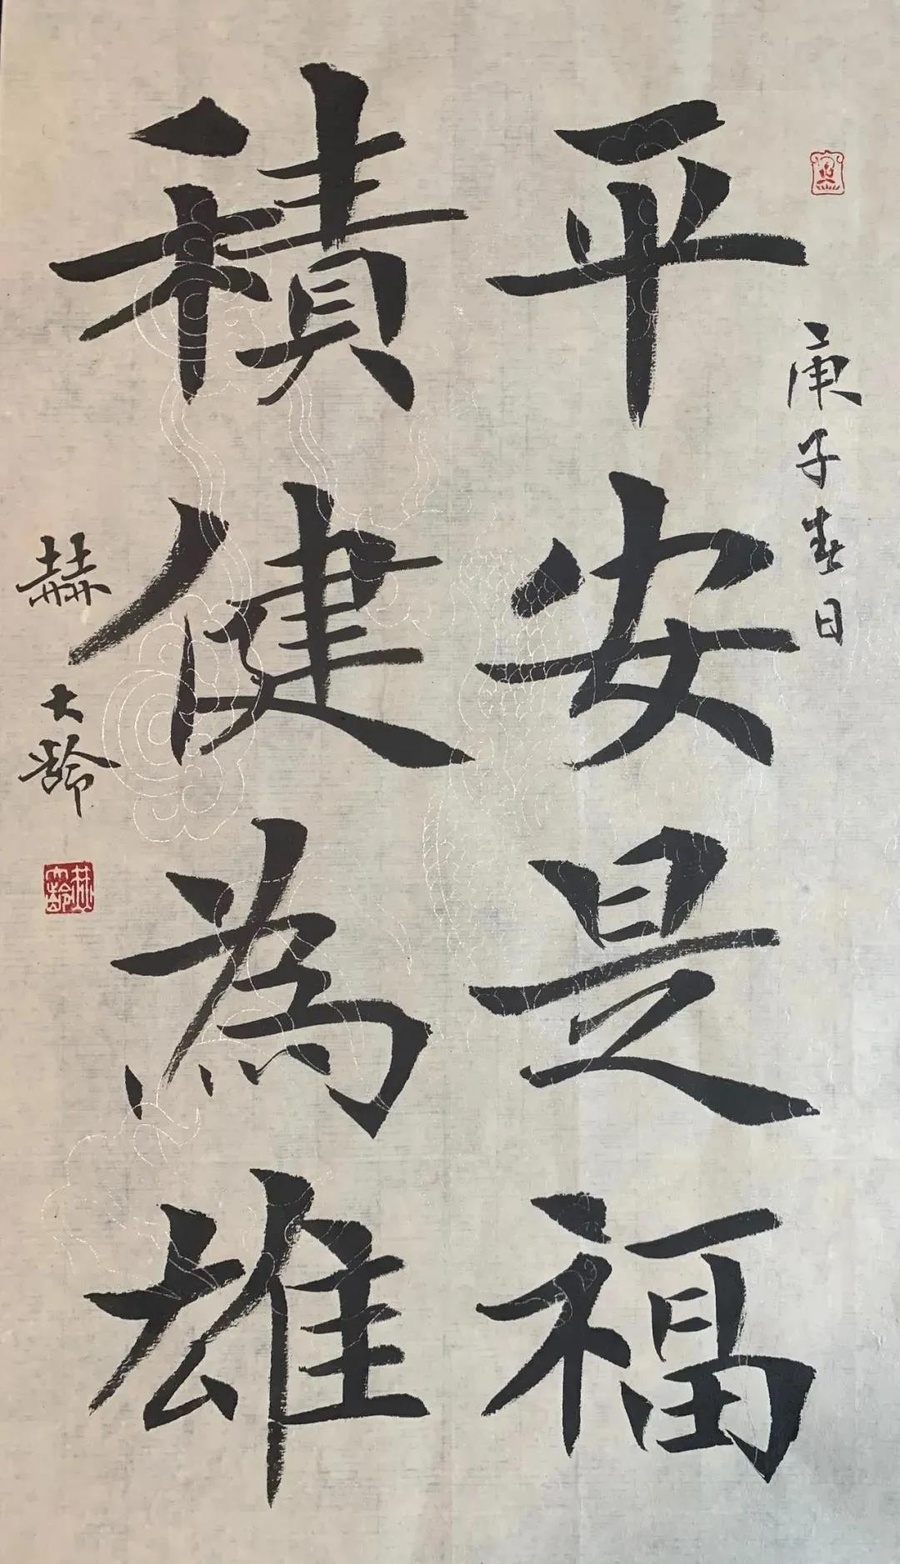 庚子春日
平安是福
積健為雄
赫大齡
赫大齡